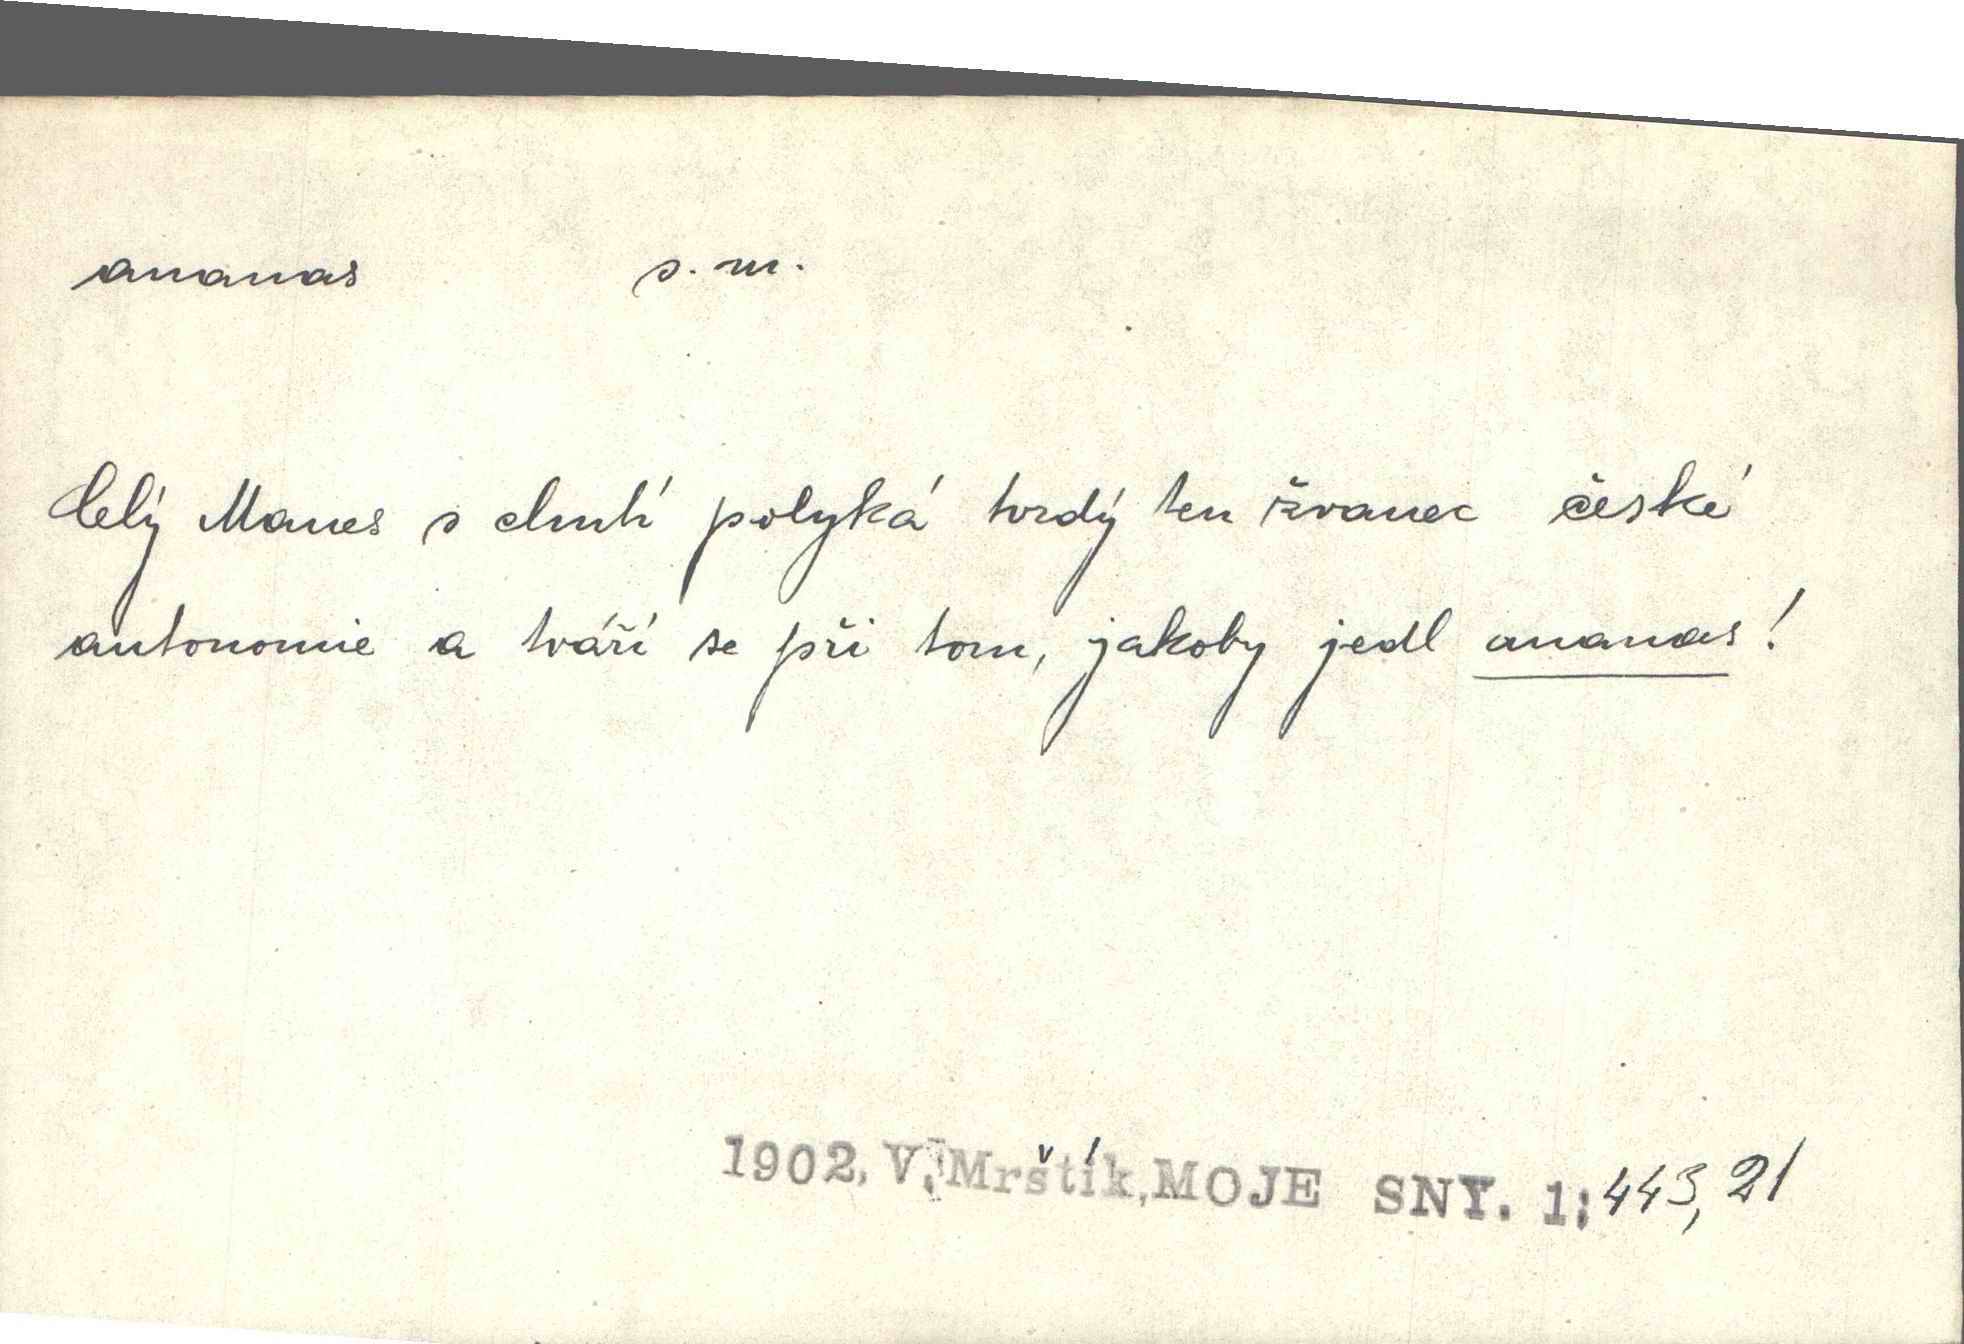 ananas s. m.
Celý Manes s chutí polyká tvrdý ten žvanec české
autonomie a tváří se při tom, jakoby jedl ananas!
1902, V. Mrštík, MOJE SNY. 1: 443, 21